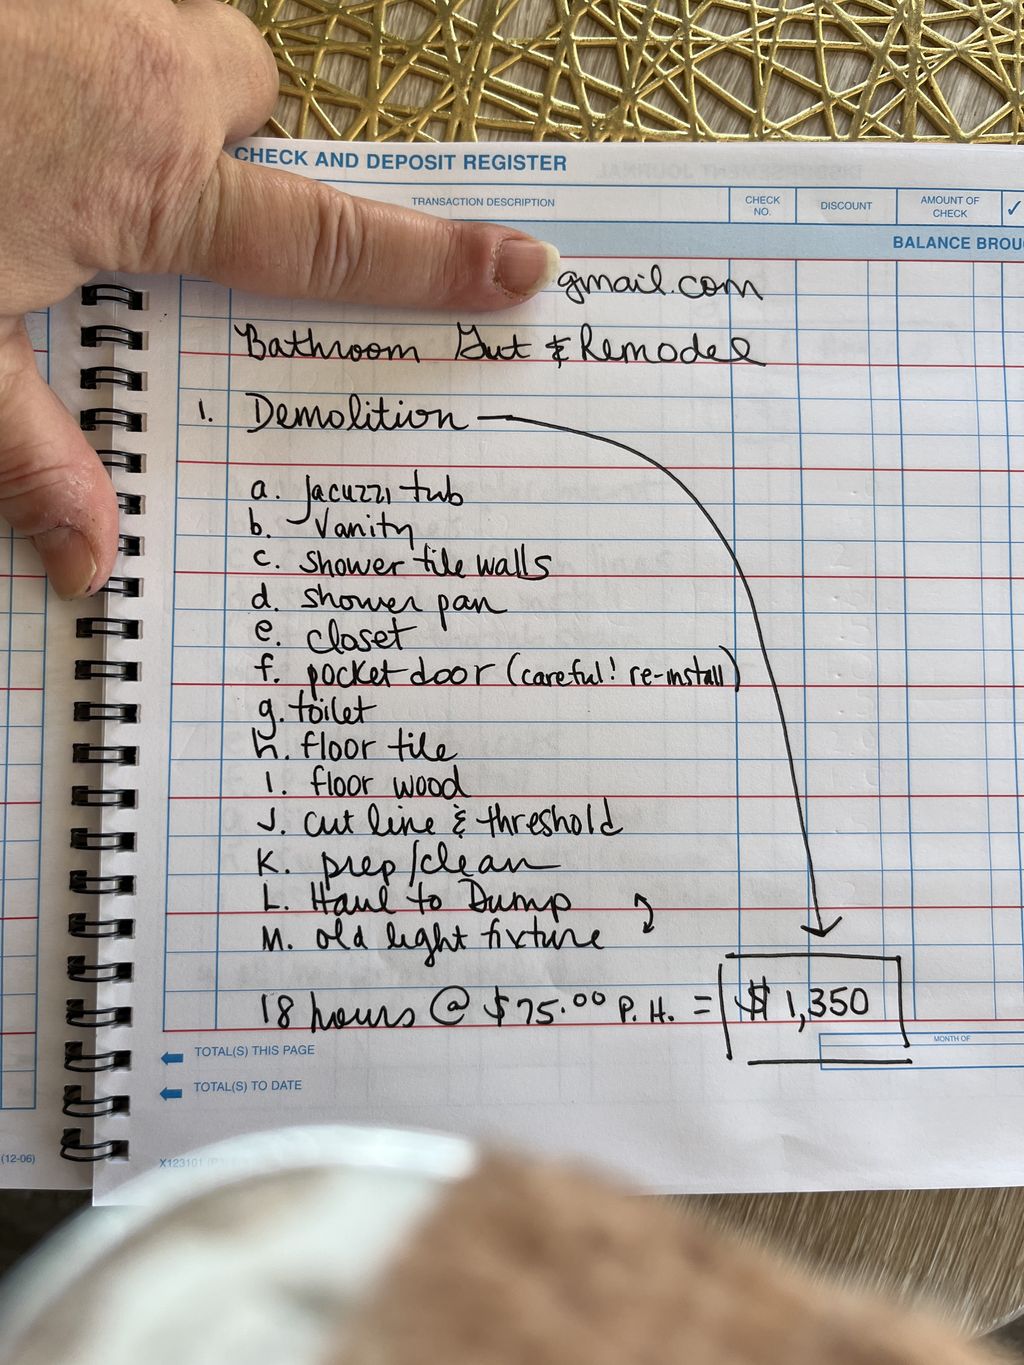 CHECK AND DEPOSIT REGISTER
TRANSACTION DESCRIPTION CHECK NO. DISCOUNT AMOUNT OF CHECK ✓
BALANCE BROU
gmail.com
Bathroom Gut & Remodel
1. Demolition
a. Jacuzzi tub
b. Vanity
c. shower tile walls
d. shower pan
e. closet
f. pocket door (careful! re-install)
g. toilet
h. floor tile
I. floor wood
J. cut line & threshold
K. prep/clean
L. Haul to Dump
M. old light fixture
18 hours @ $75.00 P.H. = $1,350
MONTH OF
TOTAL(S) THIS PAGE
TOTAL(S) TO DATE
(12-06) X123101